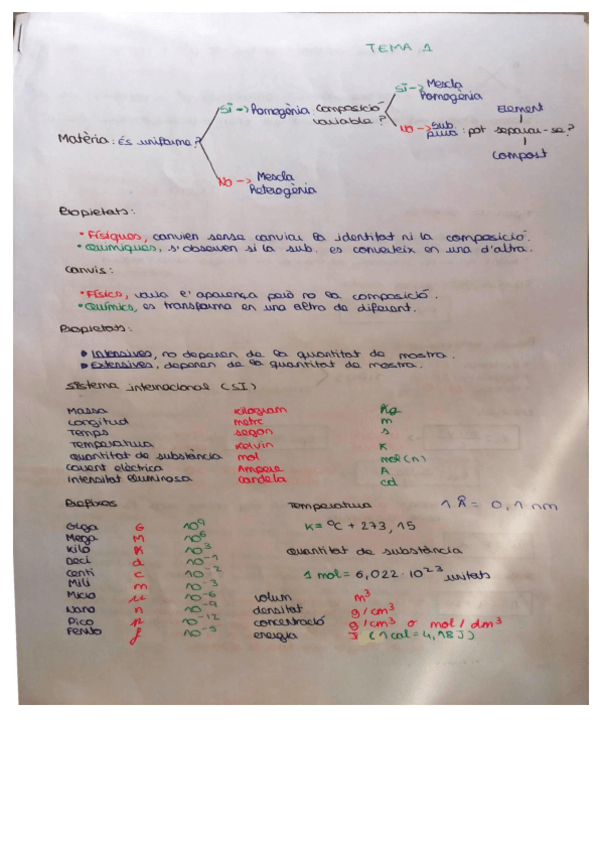 TEMA 1
Matèria: És uniforme?
SÍ -> Homogènia composició variable?
SÍ -> Mescla Homogènia
NO -> sub. pura: pot separar-se?
Element
Compost
NO -> Mescla Heterogènia
Propietats:
• Físiques, canvien sense canviar la identitat ni la composició.
• Químiques, s'observen si la sub. es converteix en una d'altra.
Canvis:
• Físics, varia l'aparença però no la composició.
• Químics, es transforma en una altra de diferent.
Propietats:
• Intensives, no depenen de la quantitat de mostra.
• Extensives, depenen de la quantitat de mostra.
Sistema internacional (SI)
Massa Kilogram Kg
Longitud metre m
Temps segon s
Temperatura Kelvin K
Quantitat de substància mol mol (n)
Corrent elèctrica Ampere A
Intensitat lluminosa Candela cd
Prefixos
Giga G 10⁹
Mega M 10⁶
Kilo K 10³
Deci d 10⁻¹
Centi c 10⁻²
Mili m 10⁻³
Micro μ 10⁻⁶
Nano n 10⁻⁹
Pico p 10⁻¹²
Femto f 10⁻⁵
Temperatura 1 Å = 0,1 nm
K = ºC + 273,15
Quantitat de substància
1 mol = 6,022 · 10²³ unitats
volum m³
densitat g/cm³
concentració g/cm³ o mol/dm³
energia J (1cal = 4,18J)